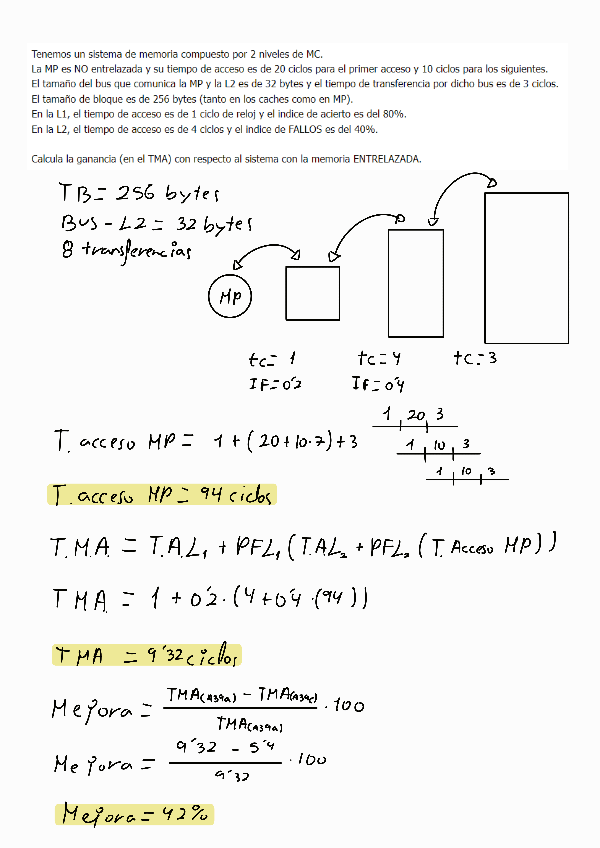 Tenemos un sistema de memoria compuesto por 2 niveles de MC.
La MP es NO entrelazada y su tiempo de acceso es de 20 ciclos para el primer acceso y 10 ciclos para los siguientes.
El tamaño del bus que comunica la MP y la L2 es de 32 bytes y el tiempo de transferencia por dicho bus es de 3 ciclos.
El tamaño de bloque es de 256 bytes (tanto en los caches como en MP).
En la L1, el tiempo de acceso es de 1 ciclo de reloj y el indice de acierto es del 80%.
En la L2, el tiempo de acceso es de 4 ciclos y el indice de FALLOS es del 40%.
Calcula la ganancia (en el TMA) con respecto al sistema con la memoria ENTRELAZADA.
TB = 256 bytes
BUS - L2 = 32 bytes
8 transferencias
MP
tc= 1 tc=4 tc=3
IF=0'2 IF=0'4
1 20 3
T. acceso MP = 1 + (20+10·7)+3
1 10 3
1 10 3
T. acceso MP = 94 ciclos
T.M.A. = T.A.L1 + PFL1 (T.A.L2 + PFL2 (T. Acceso MP))
TMA = 1 + 0'2 · (4+0'4 ·(94))
TMA = 9'32 ciclos
Mejora = TMA(A39a) - TMA(A39c) / TMA(A39a) · 100
Mejora = 9'32 - 5'4 / 9'32 · 100
Mejora = 42%